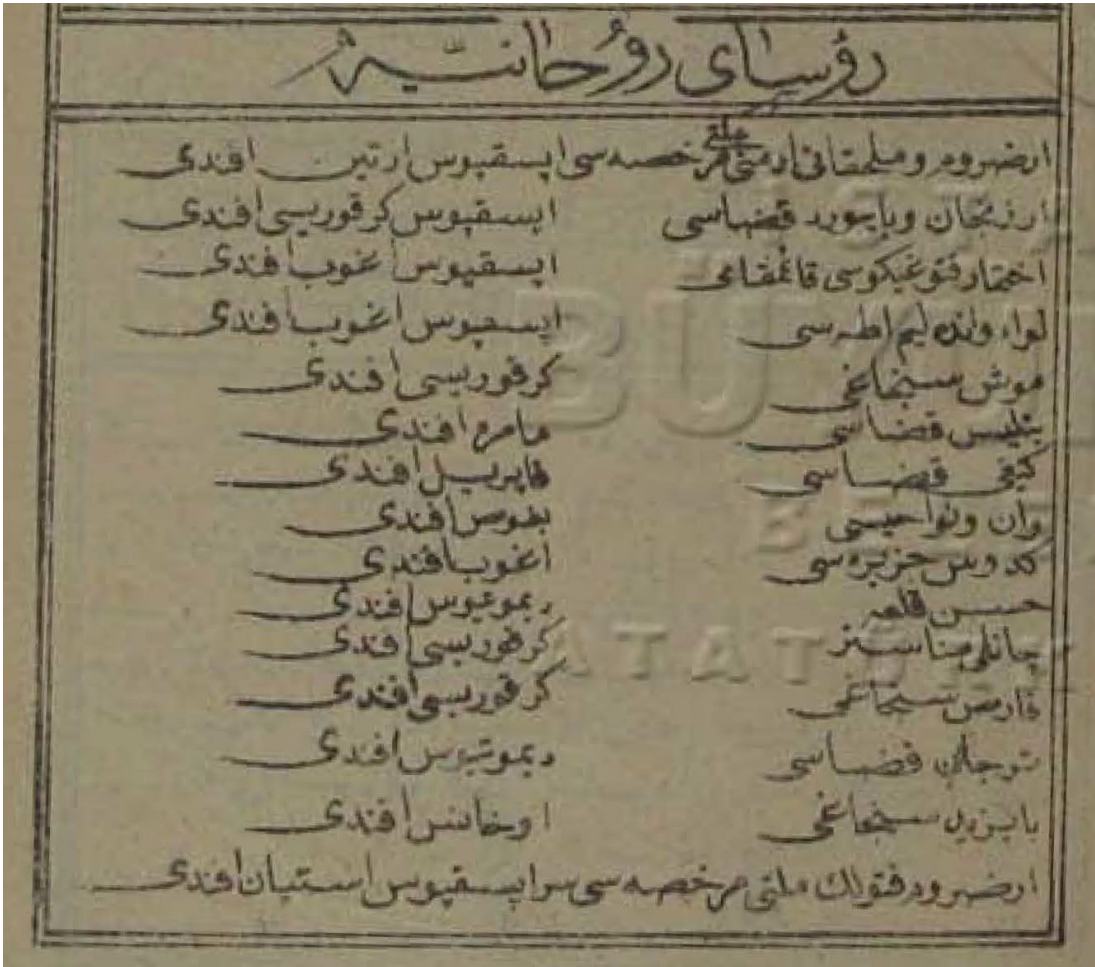 رؤسای روحانیه
ارضروم وملحقاتی ارمنی ملتی مرخصه سی اپسقپوس ارتین افندی
ارزنجان وبایبورد قضاسی اپسقپوس کرقوریسی افندی
اختمار قتوغیکوسی قائمقامی اپسقپوس اغوب افندی
لواء وانده لیم اطه سی اپسقپوس اغوب افندی
موش سنجاغی کرقوریسی افندی
بتلیس قضاسی مامره افندی
کیغی قضاسی قاپریل افندی
وان ونواحیسی بغوس افندی
کدوس جزیره سی اغوب افندی
حسن قلعه دیموتیوس افندی
کرقوریسی افندی
قارص سنجاغی کرقوریسی افندی
ترجان قضاسی دیموتیوس افندی
بایزید سنجاغی اوخانس افندی
ارضروم قتولك ملتی مرخصه سی سراپسقپوس استپان افندی
BU
ATAT